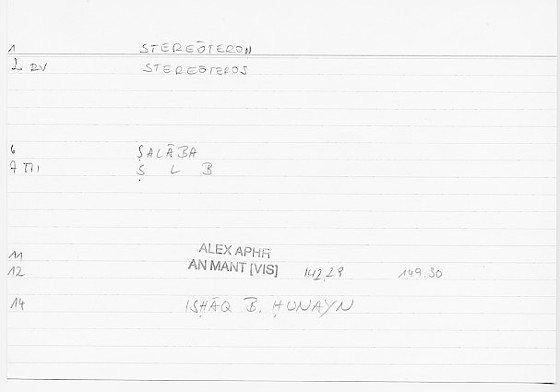 1 STEREŌTERON
2 RV STEREŌTEROS
6 ṢALĀBA
7 TI1 Ṣ L B
11 ALEX APHR
12 AN MANT [VIS] 142,28 149.30
14 ISḤĀQ B. ḤUNAYN